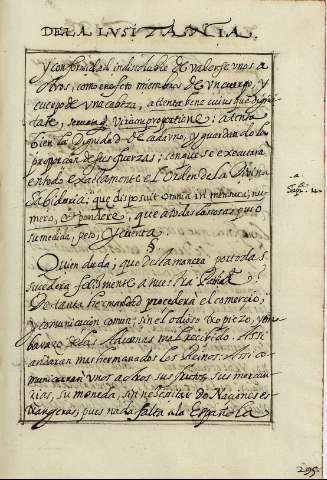 DE LA INSITANIA.
y conformidad indisoluble de valerse unos a
otros, como en efeto miembros de un cuerpo, y
cuerpo de una cabeza, attenta bene cuius que digni
tate, servata que virium proportione; atenta
bien la Dignidad de cada uno, y guardada la
proporcion de sus fuerzas; con que se executara
en todo exactamente el Orden de la Divina
Sabiduria, que disposuit omnia in mensura, nu
mero, et pondere, que a todas las cosas puso
su medida, peso, y cuenta.
a
Sap. c. 11.
§
Quien duda, que desta manera por todas
sucedera felizmente a nuestra
De tanta hermandad procedera el comercio,
y comunicacion comun; sin el odioso tropiezo, y em
barazo de las Aduanas mal recibido. Assi
andaran mas hermanados los Reinos: Assi co
municarran unos a otros sus frutos, sus mercan
cias, su moneda, sin necessitar de Naciones es
trangeras; pues nada falta a la Española
295.